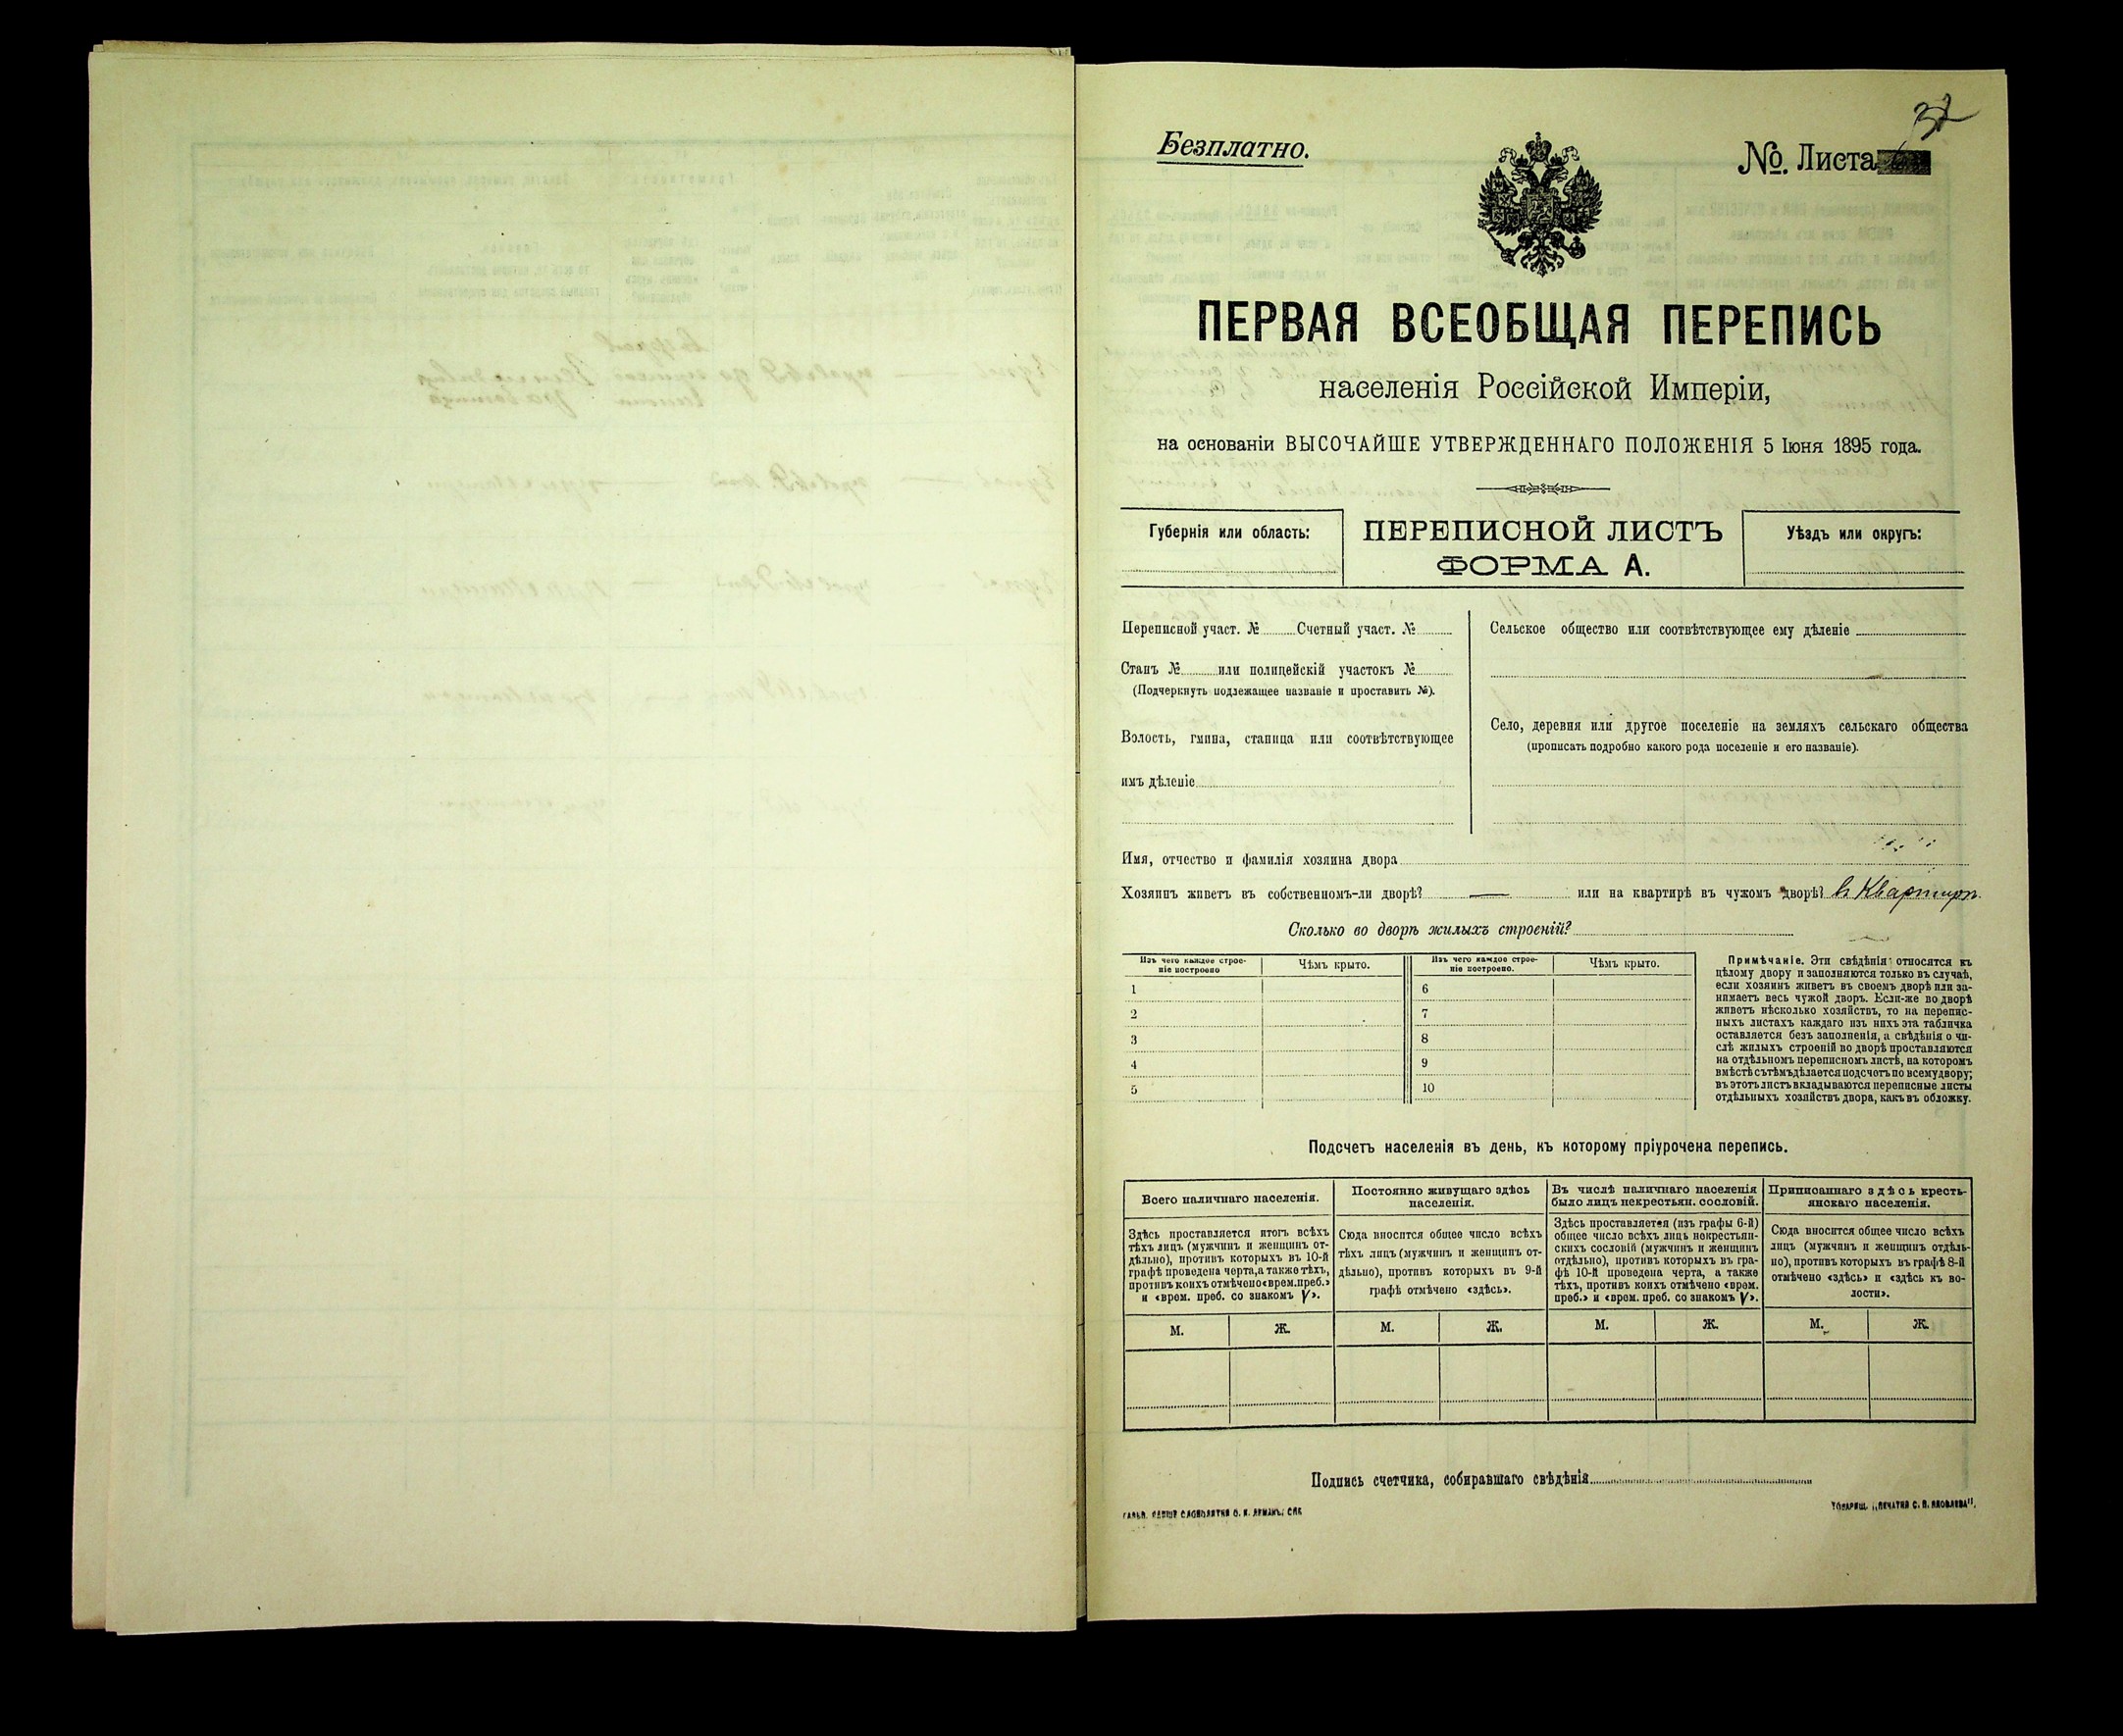 32
Безплатно.
№. Листа
ПЕРВАЯ ВСЕОБЩАЯ ПЕРЕПИСЬ
населенія Россійской Имперіи,
на основаніи ВЫСОЧАЙШЕ УТВЕРЖДЕННАГО ПОЛОЖЕНІЯ 5 Іюня 1895 года.
Губернія или область:
ПЕРЕПИСНОЙ ЛИСТЪ
ФОРМА А.
Уѣздъ или округъ:
Переписной участ. № Счетный участ. №
Станъ № или полицейскій участокъ №
(Подчеркнуть подлежащее названіе и проставить №).
Волость, гмина, станица или соотвѣтствующее
имъ дѣленіе
Сельское общество или соотвѣтствующее ему дѣленіе
Село, деревня или другое поселеніе на земляхъ сельскаго общества
(прописать подробно какого рода поселеніе и его названіе).
Имя, отчество и фамилія хозяина двора
Хозяинъ живетъ въ собственномъ-ли дворѣ? — или на квартирѣ въ чужомъ дворѣ? в Квартирѣ
Сколько во дворѣ жилыхъ строеній?
Изъ чего каждое строе-
ніе построено
Чѣмъ крыто.
Изъ чего каждое строе-
ніе построено.
Чѣмъ крыто.
1 6
2 7
3 8
4 9
5 10
Примѣчаніе. Эти свѣдѣнія относятся къ
цѣлому двору и заполняются только въ случаѣ,
если хозяинъ живетъ въ своемъ дворѣ или за-
нимаетъ весь чужой дворъ. Если-же во дворѣ
живетъ нѣсколько хозяйствъ, то на перепис-
ныхъ листахъ каждаго изъ нихъ эта табличка
оставляется безъ заполненія, а свѣдѣнія о чи-
слѣ жилыхъ строеній во дворѣ проставляются
на отдѣльномъ переписномъ листѣ, на которомъ
вмѣстѣ съ тѣмъ дѣлается подсчетъ по всему двору;
въ этотъ листъ вкладываются переписные листы
отдѣльныхъ хозяйствъ двора, какъ въ обложку.
Подсчетъ населенія въ день, къ которому пріурочена перепись.
Всего наличнаго населенія.
Здѣсь проставляется итогъ всѣхъ
тѣхъ лицъ (мужчинъ и женщинъ от-
дѣльно), противъ которыхъ въ 10-й
графѣ проведена черта, а также тѣхъ,
противъ коихъ отмѣчено «врем. преб.»
и «врем. преб. со знакомъ V».
М. Ж.
Постоянно живущаго здѣсь
населенія.
Сюда вносится общее число всѣхъ
тѣхъ лицъ (мужчинъ и женщинъ от-
дѣльно), противъ которыхъ въ 9-й
графѣ отмѣчено «здѣсь».
М. Ж.
Въ числѣ наличнаго населенія
было лицъ некрестьян. сословій.
Здѣсь проставляется (изъ графы 6-й)
общее число всѣхъ лицъ некрестьян-
скихъ сословій (мужчинъ и женщинъ
отдѣльно), противъ которыхъ въ гра-
фѣ 10-й проведена черта, а также
тѣхъ, противъ коихъ отмѣчено «врем.
преб.» и «врем. преб. со знакомъ V».
М. Ж.
Приписаннаго здѣсь кресть-
янскаго населенія.
Сюда вносится общее число всѣхъ
лицъ (мужчинъ и женщинъ отдѣль-
но), противъ которыхъ въ графѣ 8-й
отмѣчено «здѣсь» и «здѣсь къ во-
лости».
М. Ж.
Подпись счетчика, собиравшаго свѣдѣнія
ТОВАРИЩ. „ПЕЧАТНЯ С. П. ЯКОВЛЕВА".